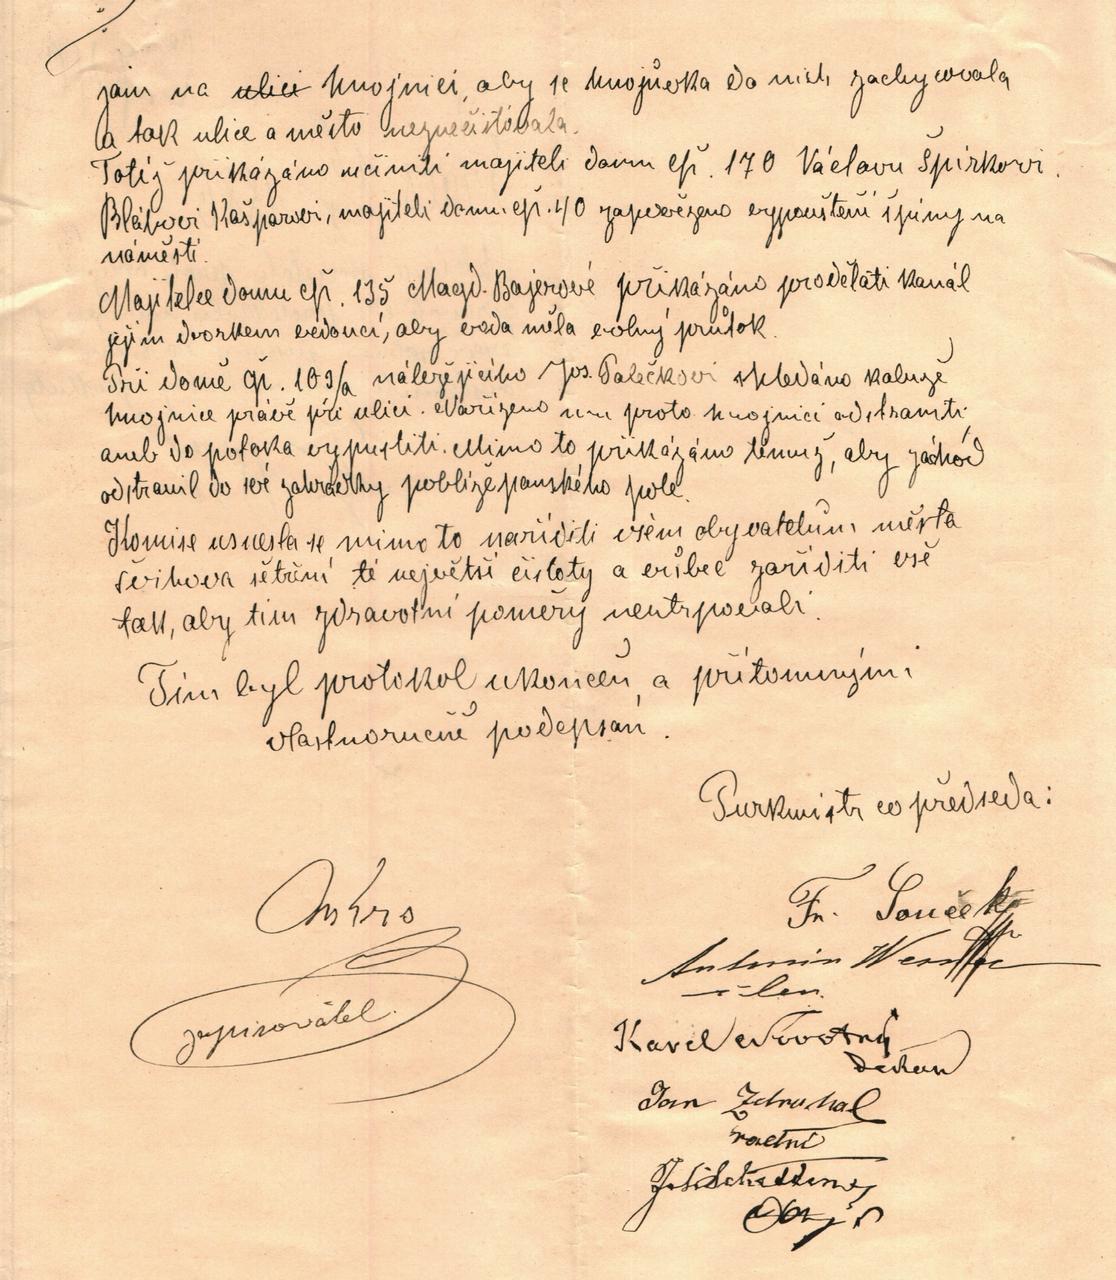 jam na ulici hnojnici, aby se hnojůvka do nich zachycovala
a tak ulice a město neznečisťovala.
Totéž přikázáno učiniti majiteli domu čp. 170 Václavu Špirkovi.
Bláhovi Kašparovi, majiteli domu čp. 40 zapovězeno vypouštění špíny na
náměstí.
Majitelce domu čp. 135 Magd. Bajerové přikázáno prodělati kanál
jejím dvorkem vedoucí, aby voda měla volný průtok.
Při domě čp. 109/a náležejícího Jos. Palečkovi shledáno kaluže
hnojnice právě při ulici. Nařízeno mu proto hnojnici odstraniti,
aneb do potoka vypustiti. Mimo to přikázáno témuž, aby záchod
odstranil do své zahrádky poblíže panského pole.
Komise usnesla se mimo to naříditi všem obyvatelům města
Švihova šetření té největší čistoty a vůbec zaříditi vše
tak, aby tím zdravotní poměry neutrpovali.
Tím byl protokol ukončen, a přítomnými
vlastnoručně podepsán.
Purkmistr co předseda:
Fr. Souček
Antonín
člen.
zapisovatel.
Karel Novotný
děkan
Jan Zdruhal
radní